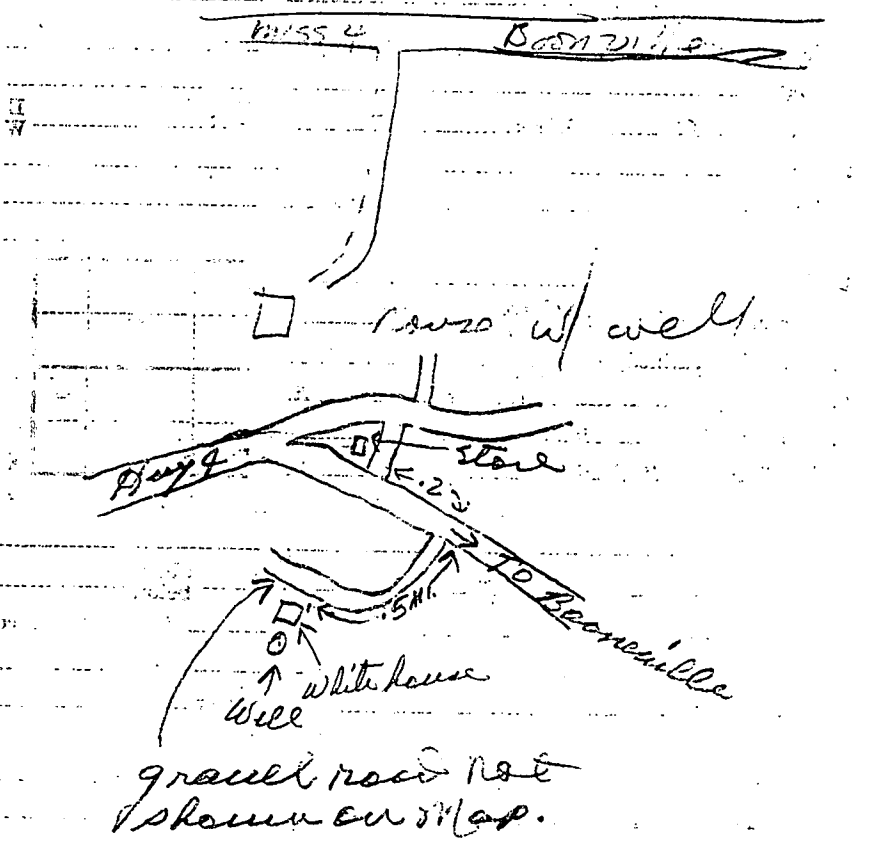 Miss 4
Boonville
w/ well
Store
Hwy 4
.2
To Booneville
.5 MI.
White house
Well
gravel road not
shown on Map.